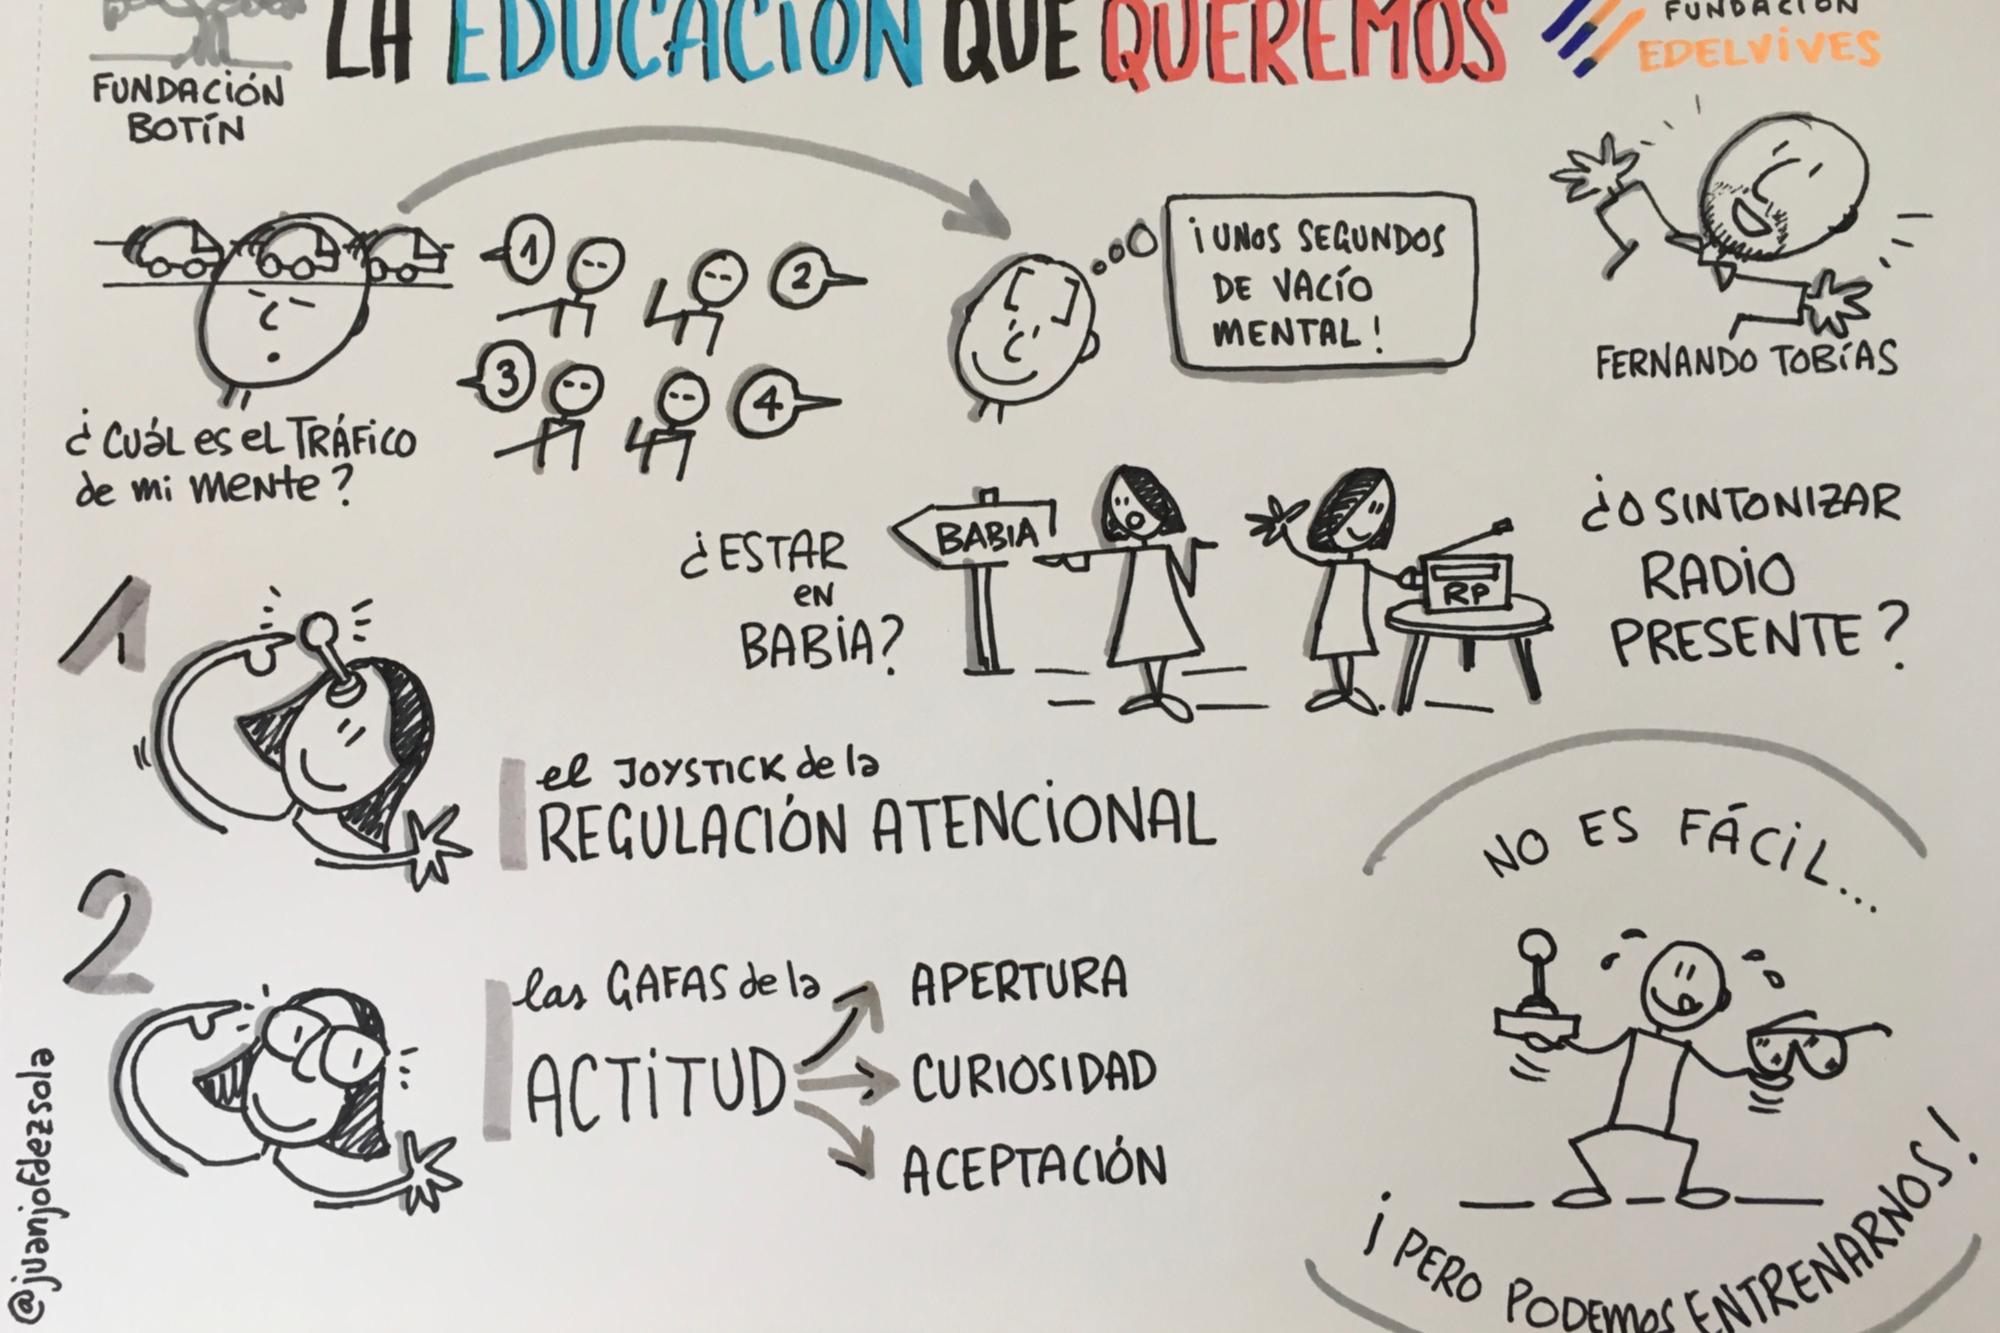 LA EDUCACIÓN QUE QUEREMOS
FUNDACIÓN
BOTÍN
FUNDACIÓN
EDELVIVES
¿CUÁL ES EL TRÁFICO
de mi mente?
1
2
3
4
¡UNOS SEGUNDOS
DE VACÍO
MENTAL!
FERNANDO TOBÍAS
¿ESTAR
EN
BABIA?
BABIA
RP
¿O SINTONIZAR
RADIO
PRESENTE?
1
el JOYSTICK de la
REGULACIÓN ATENCIONAL
2
las GAFAS de la
ACTITUD
APERTURA
CURIOSIDAD
ACEPTACIÓN
NO ES FÁCIL...
¡PERO PODEMOS ENTRENARNOS!
@juanjofdezsola